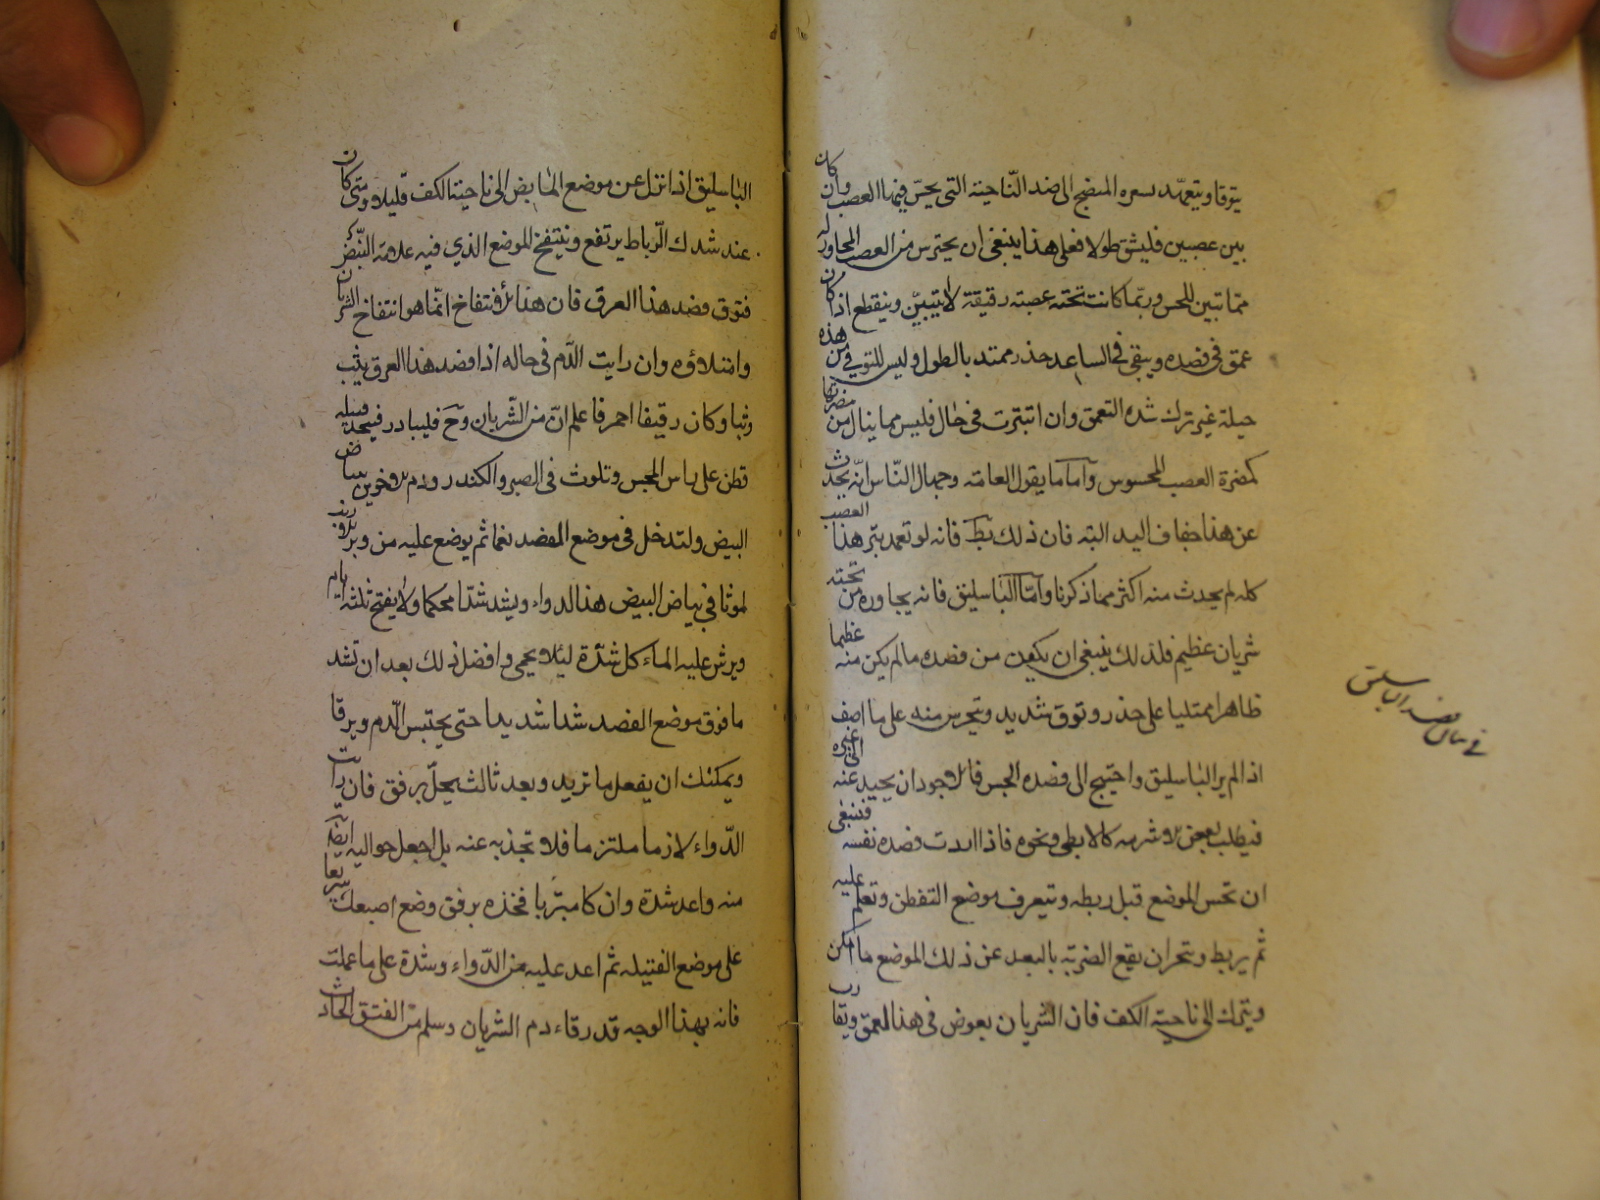 يتوقا ويتعهد بسعره المبضع الى ضد النّاحية التى يحسّ فيها العصب وان كان
بين عصبين فليشق طولا فعلى هذا ينبغى ان يحترس من العصب المجاور له
مما تبين للحس وربّما كانت تحته عصبة رقيقة لا تتبيّن وينقطع اذا كان
عمق فى فصده ويبقى فى الساعد خدر ممتد بالطول وليس للتوقي من هذه
حيلة غير ترك شدة التعمق وان انبترت فى حال فليس مما ينال من مضرتها
كمضرة العصب المحسوس وامّا ما يقول العامة وجهال النّاس انّه يحدث
عن هذا جفاف اليد البته فان ذلك بط فانه لو تعمد بتر هذا العصب
كله لم يحدث منه اكثر مما ذكرنا وامّا الباسليق فانه يجاوره من تحته
شريان عظيم فلذلك ينبغى ان يكون من فصده ما لم يكن منه عظيما
ظاهرا ممتليا على حذر وتوق شديد ويحترس منه على ما اصف
اذا لم ير الباسليق واحتيج الى فصده الجس فالاجود ان يحيد عنه الى غيره
فيطلب بعض كالابطى ونحوه فاذا اردت فصده نفسه فينبغى
ان تحس الموضع قبل ربطه ويتعرف موضع التفطن وتعلم عليه
ثم يربط ويتحر ان يقع الضربة بالبعد عن ذلك الموضع ما امكن
ويترك الى ناحية الكف فان الشريان يعوض فى هذا العمق ويقارب
فى بيان فصد الباسليق
الباسليق اذا نزل عن موضع المابض الى ناحية الكف قليلا ومتى كان
عند شدك الرّباط يرتفع وينتفخ الموضع الذي فيه علامة النّبض
فتوق فصد هذا العرق فان هذا الانتفاخ انّما هو انتفاخ الشريان
وامتلاؤه وان رايت الدّم فى حاله اذا فصد هذا العرق يثب
وثبا وكان رقيقا احمر فاعلم انّ من الشّريان وحَ فليبادر فيتخذ فتيلة
قطن على راس المجس وتلوث فى الصبر والكندر ودم الاخوين ببياض
البيض ولتدخل فى موضع المفصد نغما ثم يوضع عليه من وبر الارنب
لموثا في بياض البيض هذا الدواء ويشد شدّا محكما ولا يفتح ثلثة ايام
ويرش عليه الماء كل شدّة ليلا يحمى وافضل ذلك بعد ان تشد
ما فوق موضع الفصد شدا شديدا حتى يحتبس الّدم ويرقا
ويمكنك ان يفعل ما تريد وبعد ثالث يحلّ برفق فان رايت
الدّواء لازما ملتزما فلا تجذبه عنه بل اجعل حواليه ايضا
منه واعد شدة وان كا متبّريا فخذه برفق وضع اصبعك سريعا
على موضع الفتيلة ثم اعد عليه من الدّواء وشدة على ما عملت
فانه بهذا الوجه قد رقاء دم الشريان وسلم من الفتق الحادث